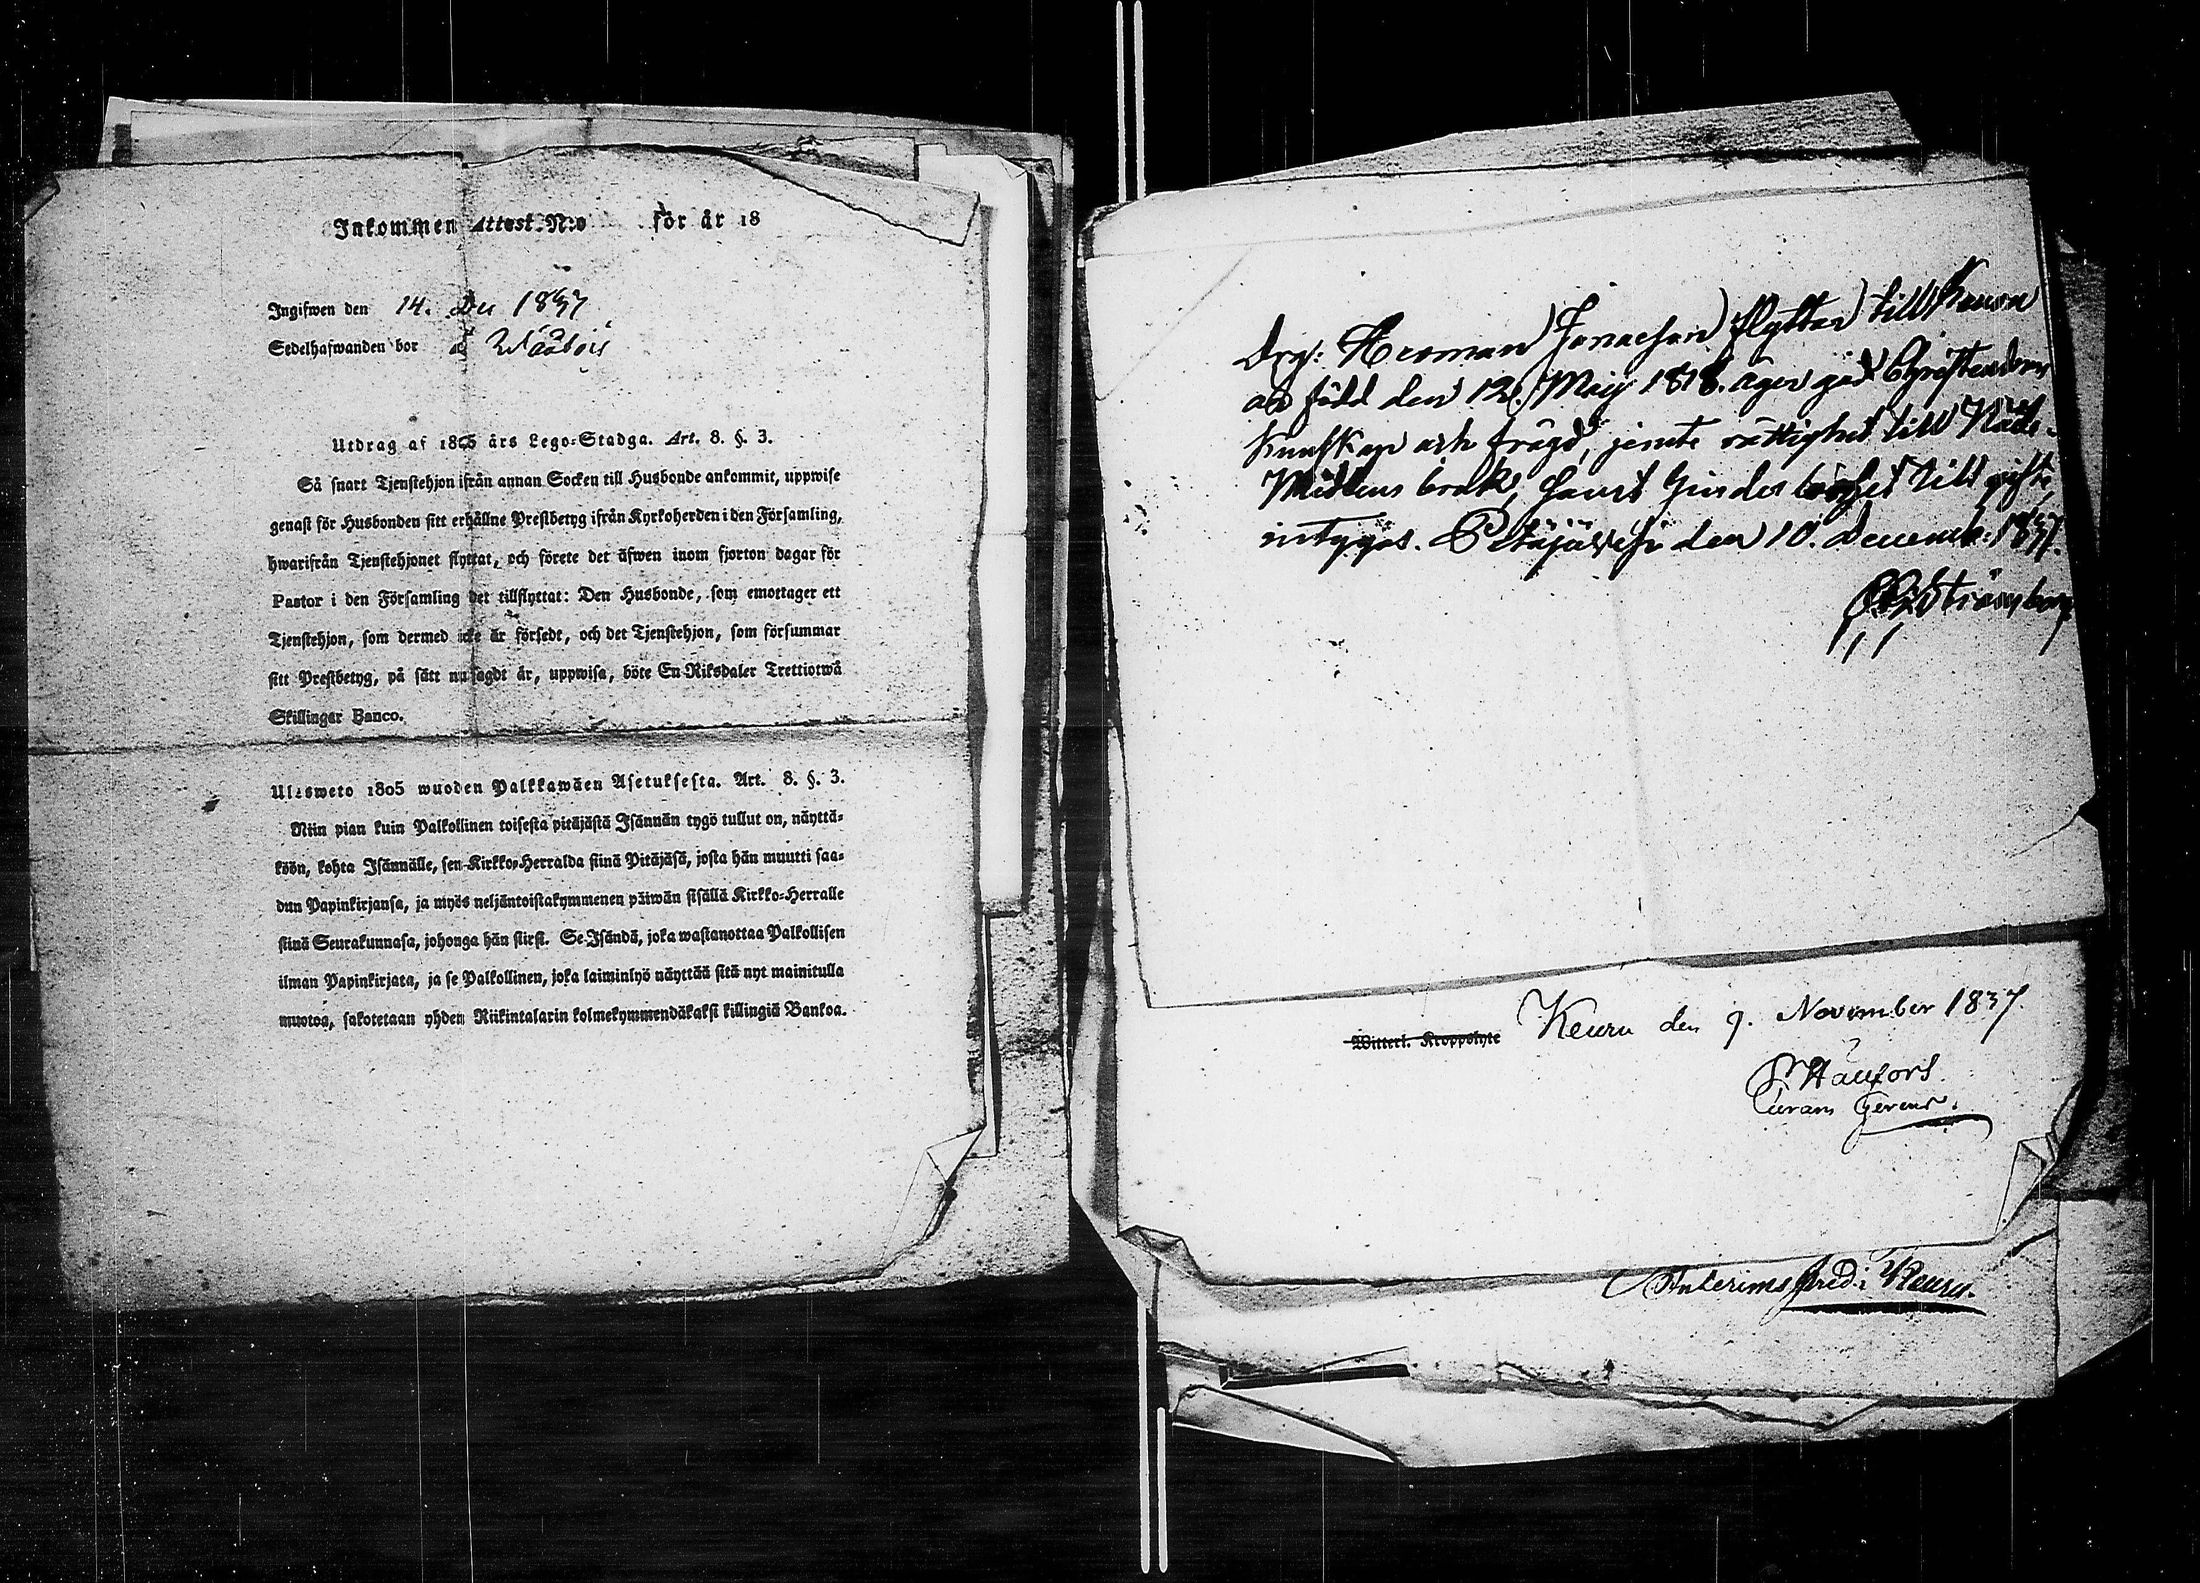 Inkommen Attest N:o för år 18
Ingifwen den 14. Dec 1837
Sedelhafwanden bor å
Utdrag af 1805 års Lego-Stadga. Art. 8. §. 3.
Så snart Tjenstehjon ifrån annan Socken till Husbonde ankommit, uppwise
genast för Husbonden sitt erhållne Prestbetyg ifrån Kyrkoherden i den Församling,
hwarifrån Tjenstehjonet flyttat, och förete det äfwen inom fjorton dagar för
Pastor i den Församling det tillflyttat: Den Husbonde, som emottager ett
Tjenstehjon, som dermed icke är försedt, och det Tjenstehjon, som försummar
sitt Prestbetyg, på sätt nu sagdt är, uppwisa, böte En Riksdaler Trettiotwå
Skillingar Banco.
Ulosweto 1805 wuoden Palkkawäen Asetuksesta. Art. 8. §. 3.
Niin pian kuin Palkollinen toisesta pitäjästä Isännän tygö tullut on, näyttä-
köön, kohta Isännälle, sen Kirkko-Herralda siinä Pitäjäsä, josta hän muutti saa-
dun Papinkirjansa, ja myös neljäntoistakymmenen päiwän sisällä Kirkko-Herralle
siinä Seurakunnasa, johonga hän siirsi. Se Isändä, joka wastanottaa Palkollisen
ilman Papinkirjata, ja se Palkollinen, joka laiminlyö näyttää sitä nyt mainitulla
muotoa, sakotetaan yhden Riikintalarin kolmekymmendäkaksi killingiä Bankoa.
Drg: Herman Jonasson flyttar till Keuru
är född den 12. Maij 1818. äger god Christendoms
kunskap och frägd, jemte rättighet till Nåde-
Medlens bruk, samt hinderlöshet till gifte,
intygas. Petäjävesi den 10. Decemb: 1837.
Strömborg
Witterl. Kroppslyte Keuru den 9. November 1837.
Curam Gerens.
Interims pred: i Keuru.